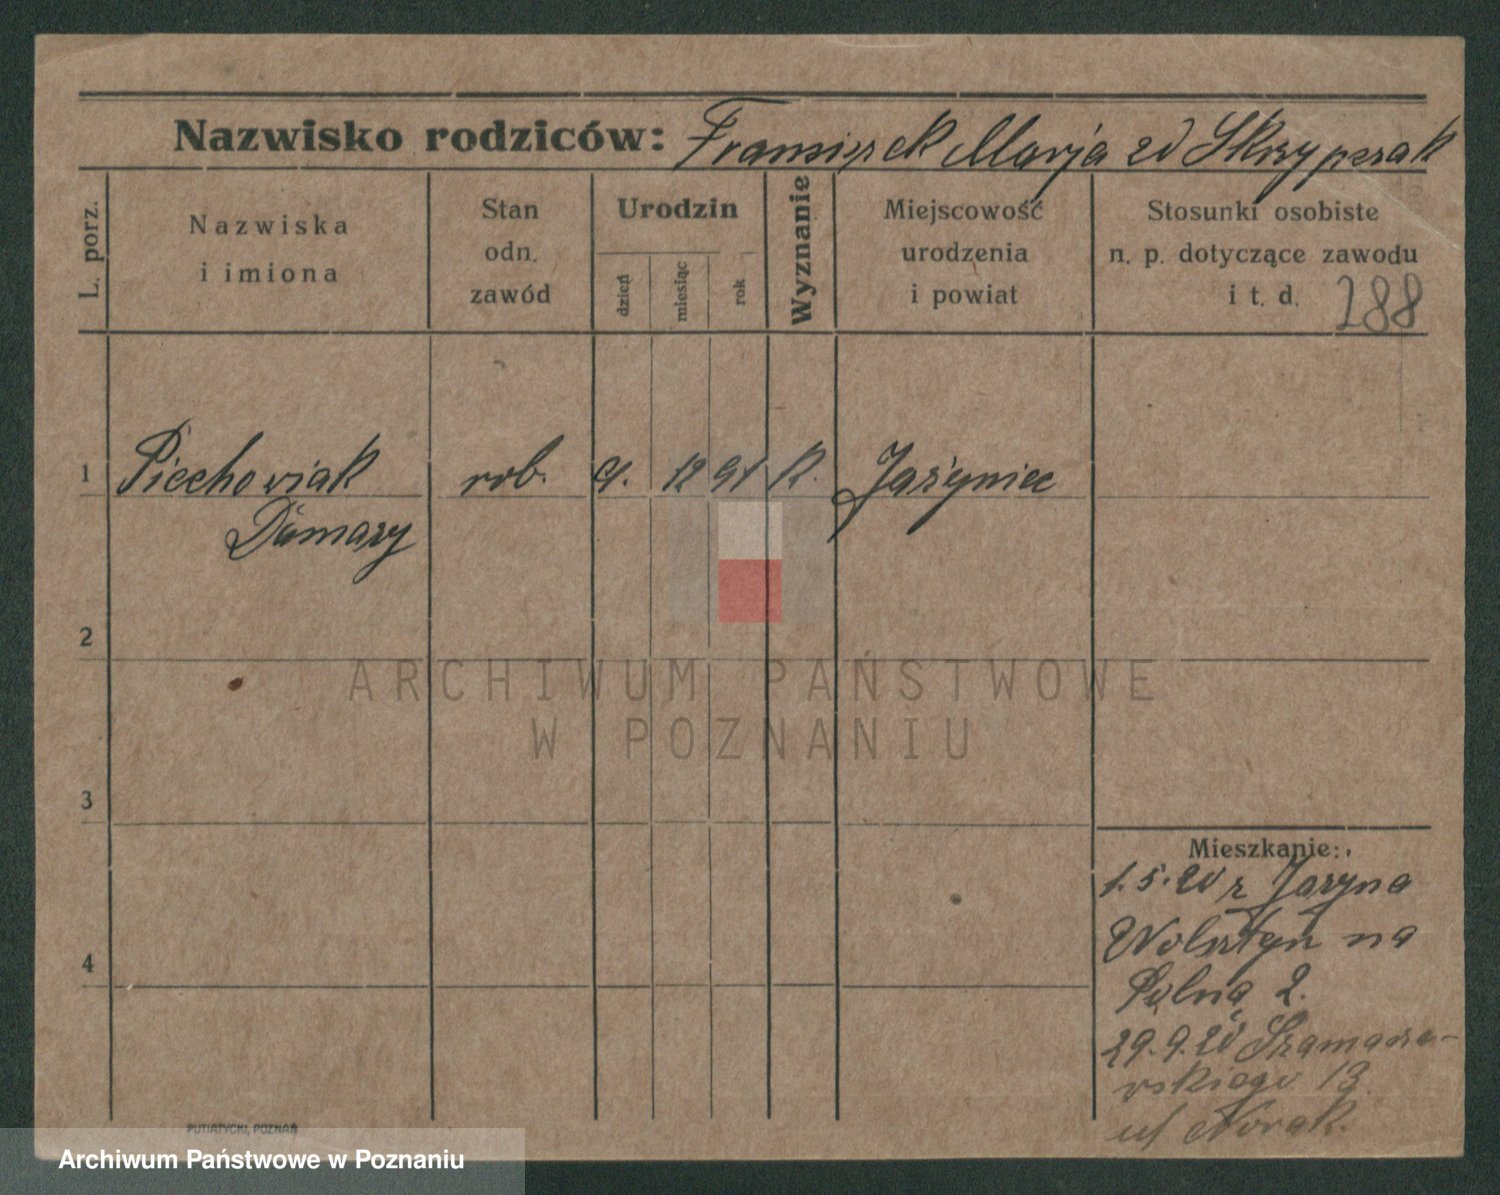 Nazwisko rodziców: Franciszek Marja zd Skrzypczak
L. porz.
Nazwiska
i imiona
Stan
odn.
zawód
Urodzin
dzień
miesiąc
rok
Wyznanie
Miejscowość
urodzenia
i powiat
Stosunki osobiste
n. p. dotyczące zawodu
i t. d. 288
1 Piechowiak rob. 9. 12 91 R. Jażyniec
Damazy
2
3
4
Mieszkanie:
1.5.20 z Jazyna
Wolsztyn na
Polną 2.
29.9.20 Szamarze-
wskiego 13
u/ Nowak.
PUTIATYCKI, POZNAŃ
ARCHIWUM PAŃSTWOWE
W POZNANIU
Archiwum Państwowe w Poznaniu